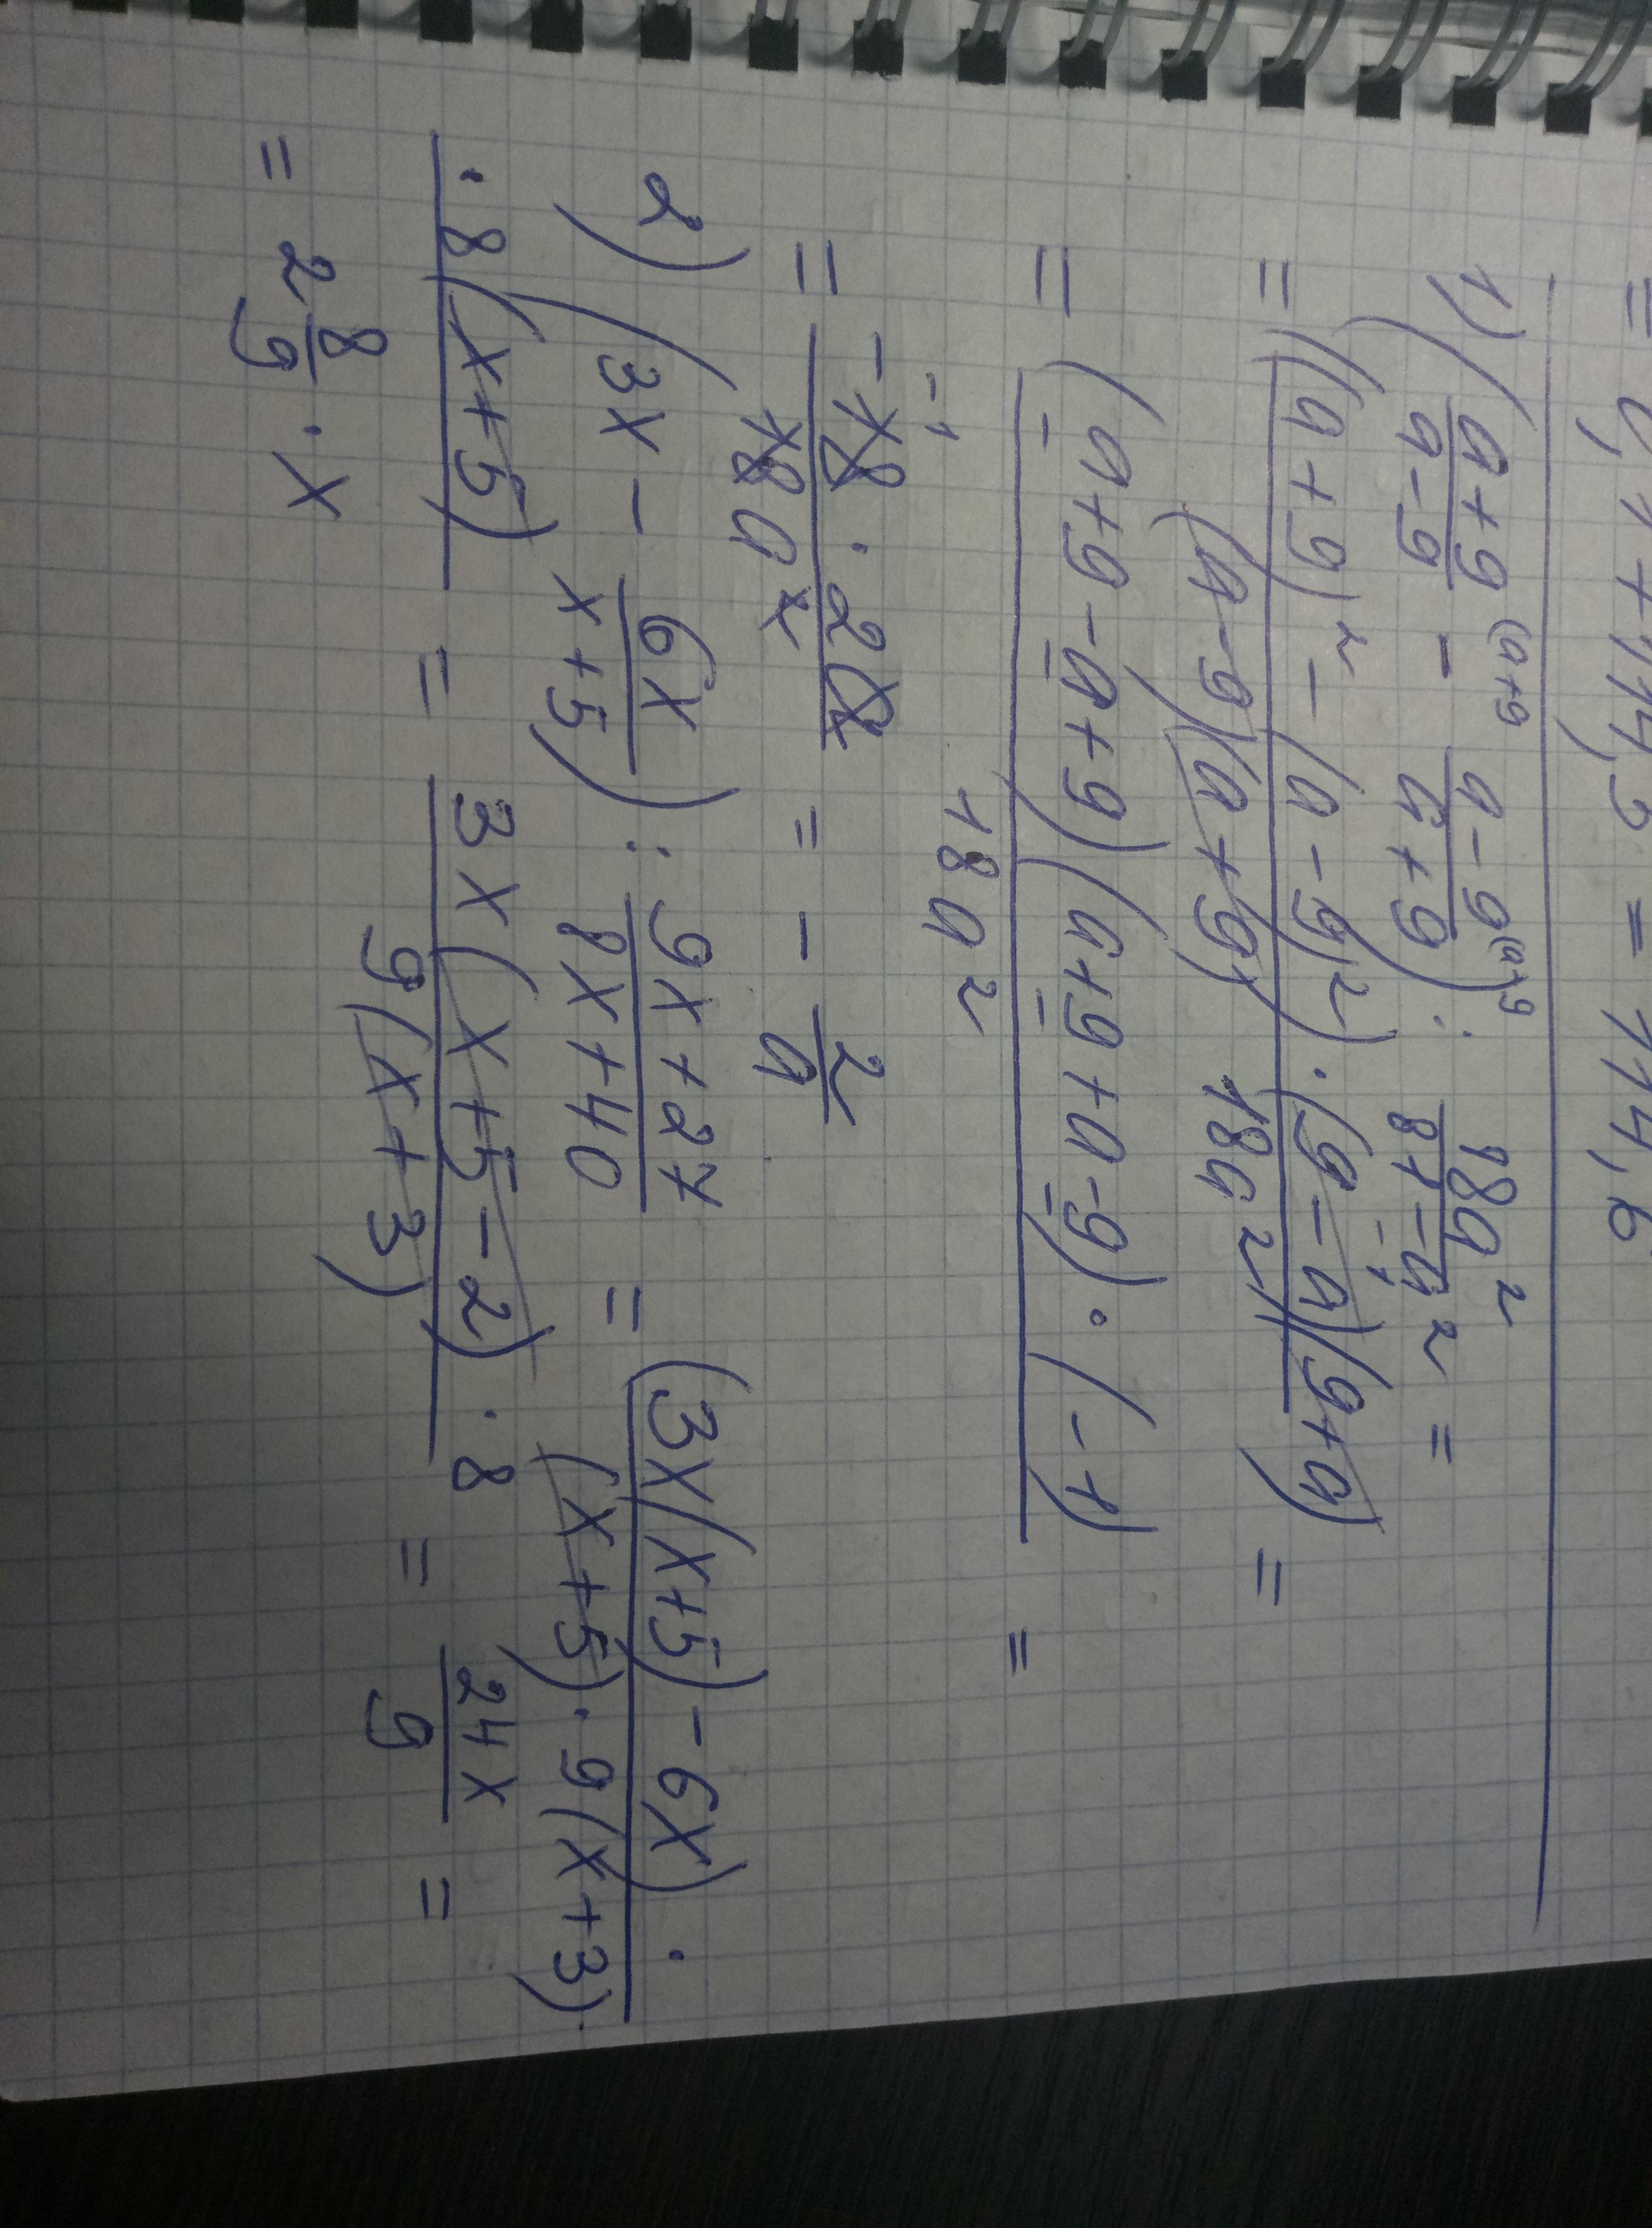 = 0,1 + 114,5 = 114,6
1) ((a+9)/(a-9) (a+9 - (a-9)/(a+9) (a-9) : 18a²/(81-a²) =
= ((a+9)² - (a-9)²)·(9-a)(9+a) / (a-9)(a+9) 18a² =
= (a+9-a+9)(a+9+a-9)·(-1) / 18a² =
= -18·2a / 18a² = -2/a
2) (3x - 6x/(x+5)) : (9x+27)/(8x+40) = (3x(x+5)-6x)· / (x+5)·9(x+3)·
·8(x+5) = 3x(x+5-2)·8 / 9(x+3) = 24x/9 =
= 2 8/9 · x